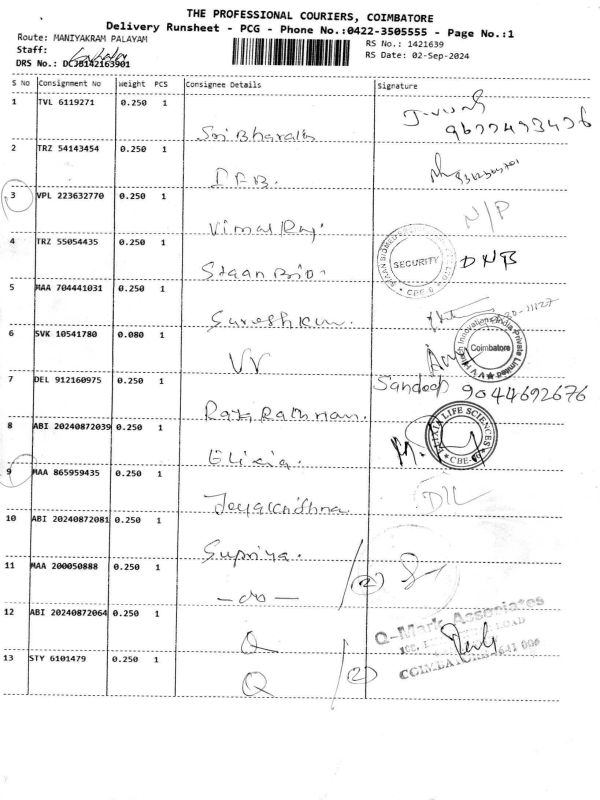 THE PROFESSIONAL COURIERS, COIMBATORE
Delivery Runsheet - PCG - Phone No.:0422-3505555 - Page No.:1
Route: MANIYAKRAM PALAYAM
RS No.: 1421639
Staff:
RS Date: 02-Sep-2024
DRS No.: DCJB142163901
S No Consignment No Weight PCS Consignee Details Signature
1 TVL 6119271 0.250 1
Sri Bharath
9677493476
2 TRZ 54143454 0.250 1
IFB.
3 VPL 223632770 0.250 1
Vimal Raj.
N/P
4 TRZ 55054435 0.250 1
Staan Bio.
SECURITY
CBE-6
DNB
5 MAA 704441031 0.250 1
Sureshkum.
6 SVK 10541780 0.080 1
VV
Innovations India Private Limited
Coimbatore
7 DEL 912160975 0.250 1
Sandeep 9044692676
8 ABI 20240872039 0.250 1
Elixia.
ELIXIA LIFE SCIENCES
CBE-
9 MAA 865959435 0.250 1
Jeyakridhna
D/L
10 ABI 20240872081 0.250 1
Supriya.
11 MAA 200050888 0.250 1
-do-
(2)
12 ABI 20240872064 0.250 1
Q
Q-Mark Associates
ROAD
COIMBATORE-641 006
13 STY 6101479 0.250 1
Q
(2)